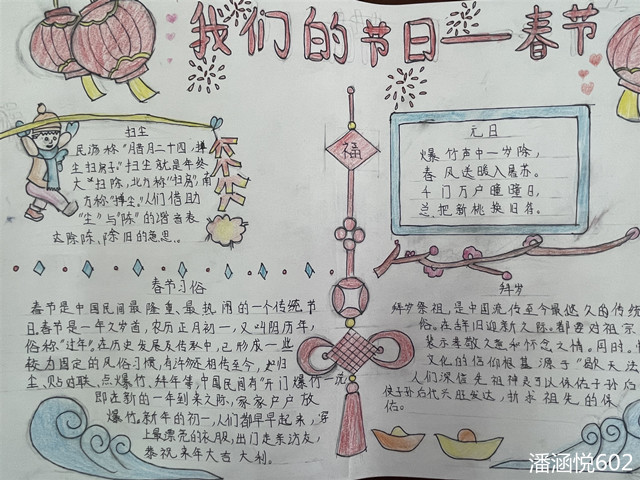 我们的节日一春节
扫尘
民谚称"腊月二十四,掸
尘扫房子"扫尘就是年终
大扫除,北方称"扫房",南
方称"掸尘"。人们借助
"尘"与"陈"的谐音表
达除陈、除旧的意思。
元日
爆竹声中一岁除,
春风送暖入屠苏。
千门万户曈曈日,
总把新桃换旧符。
福
春节习俗
春节是中国民间最隆重、最热闹的一个传统节
日。春节是一年岁首,农历正月初一,又叫阴历年,
俗称"过年"。在历史发展及传承中,已形成一些
较为固定的风俗习惯,有许多还相传至今,如扫
尘、贴对联、点爆竹、拜年等,中国民间有"开门爆竹一说
即在新的一年到来之际,家家户户放
爆竹。新年的初一,人们都早早起来,穿
上最漂亮的衣服,出门走亲访友,
恭祝来年大吉大利。
拜岁
拜岁祭祖,是中国流传至今最悠久的传统
俗。在辞旧迎新之际。都要对祖宗
表示孝敬之意和怀念之情。同时,
文化的信仰根基源于"敬天法
人们深信先祖神灵可以保佑子孙后
使子孙后代兴旺发达,祈求祖先的保
佑。
潘涵悦602